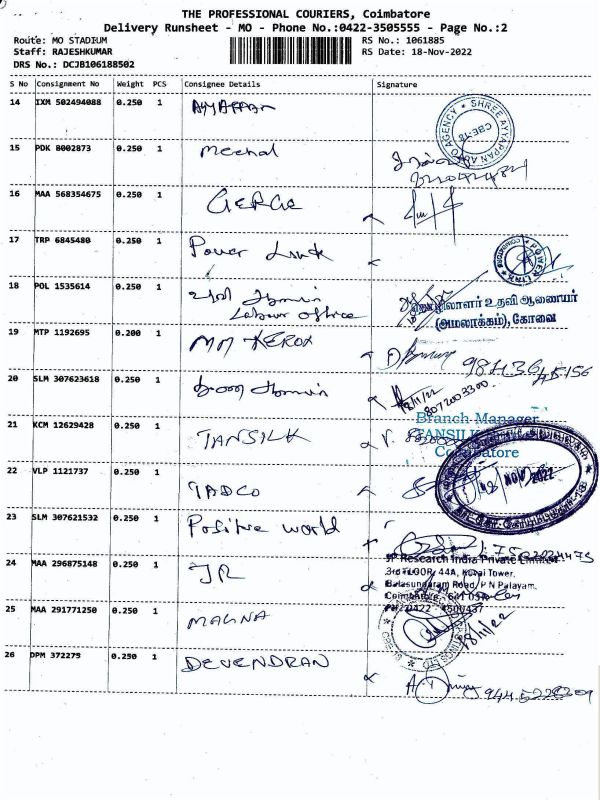 THE PROFESSIONAL COURIERS, Coimbatore
Delivery Runsheet - MO - Phone No.:0422-3505555 - Page No.:2
Route: MO STADIUM
RS No.: 1061885
Staff: RAJESHKUMAR
RS Date: 18-Nov-2022
DRS No.: DCJB106188502
S No Consignment No Weight PCS Consignee Details Signature
14 IXM 502494088 0.250 1 AYYAPPAN
SHREE AYYAPPAN AGENCY
CBE-18
15 PDK 8002873 0.250 1
16 MAA 568354675 0.250 1 GERGE
17 TRP 6845480 0.250 1 Power Link
POWER LINK COIMBATORE
18 POL 1535614 0.250 1
Labour Office
தொழிலாளர் உதவி ஆணையர்
(அமலாக்கம்), கோவை
19 MTP 1192695 0.200 1 MM XEROX
20 SLM 307623618 0.250 1
18/11/22
8072003300
Branch Manager
21 KCM 12629428 0.250 1 TANSILK
TANSILK
Coimbatore
22 VLP 1121737 0.250 1 TADCO
NOV 2022
23 SLM 307621532 0.250 1 Positive world
24 MAA 296875148 0.250 1 JR
JP Research India Private Limited
3rd FLOOR, 44A, Kodai Tower,
Balasundaram Road, P N Palayam,
Coimbatore - 641 037
PH: 0422 - 4500437
25 MAA 291771250 0.250 1 MAGNA
18/11/22
CBE-18
26 DPM 372279 0.250 1 DEVENDRAN